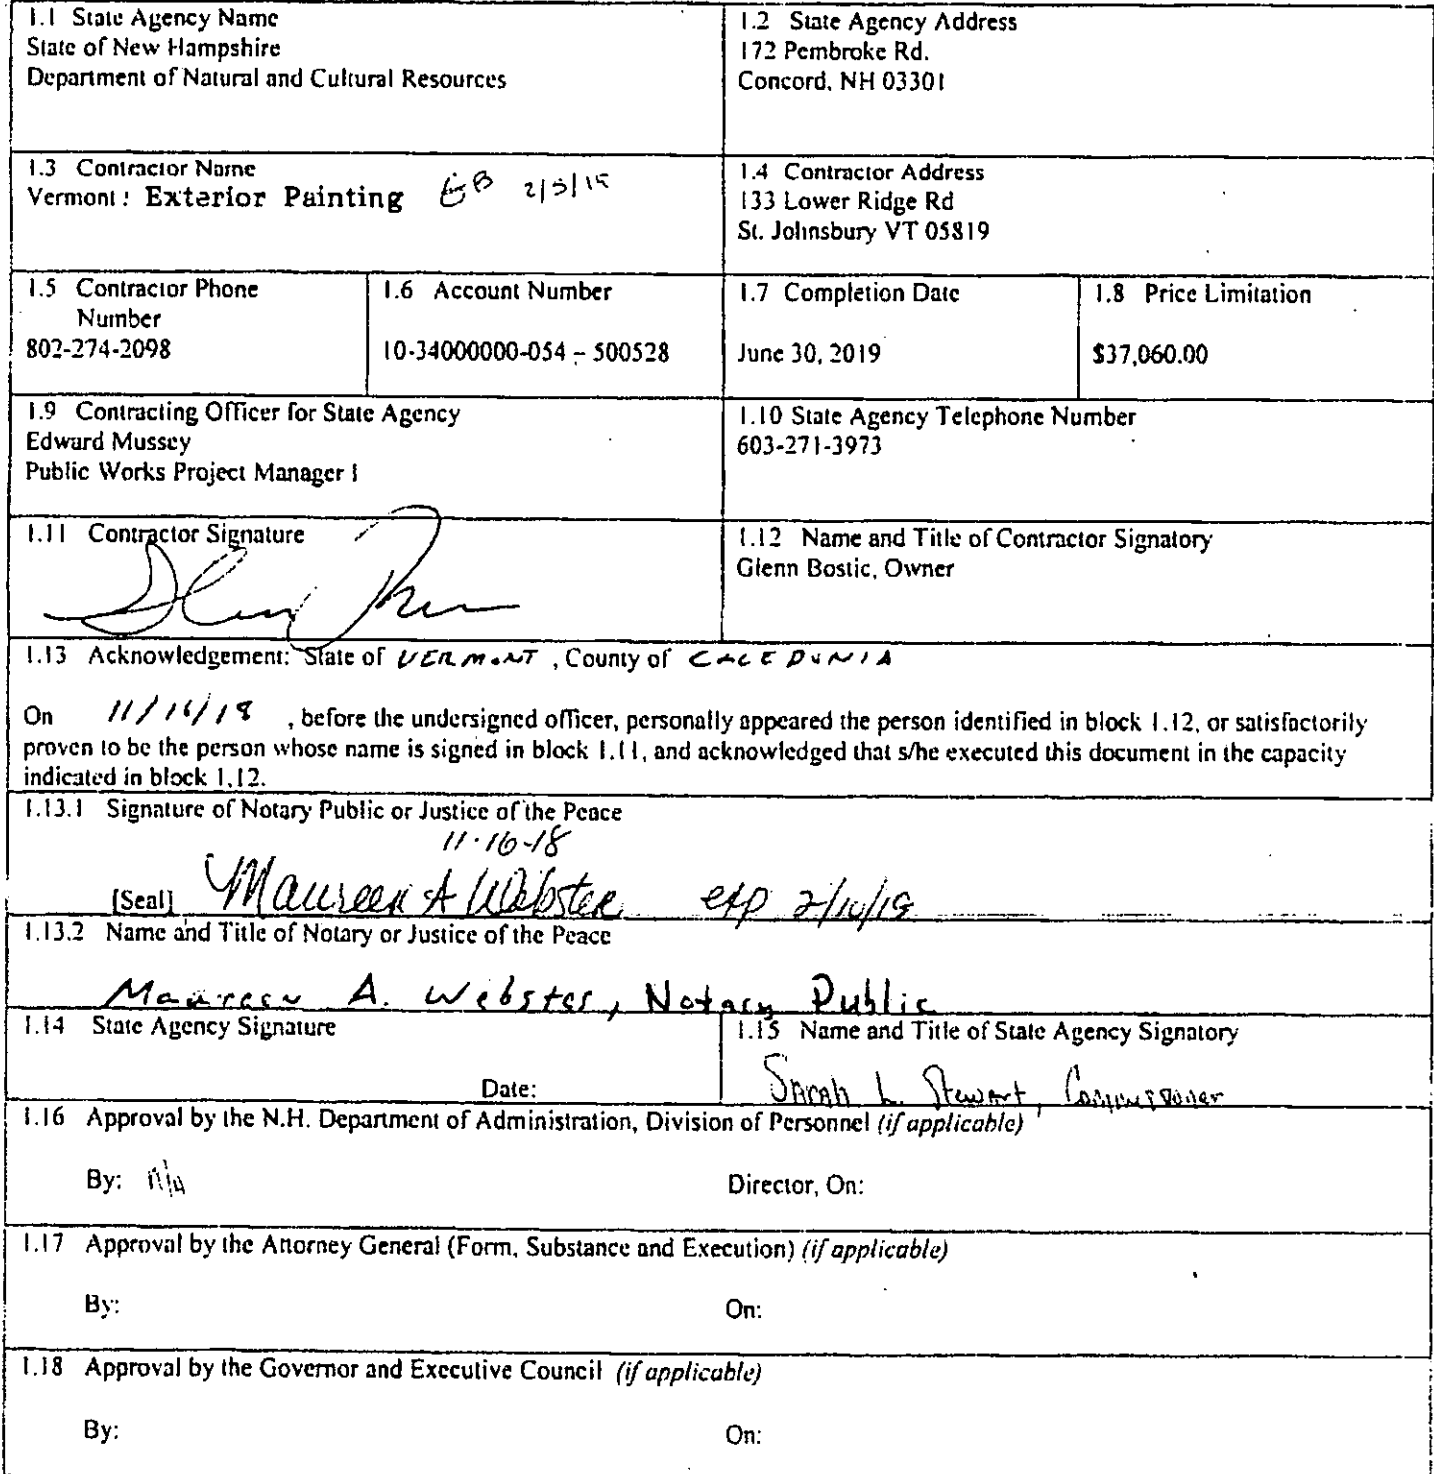 1.1 State Agency Name
State of New Hampshire
Department of Natural and Cultural Resources
1.2 State Agency Address
172 Pembroke Rd.
Concord, NH 03301
1.3 Contractor Name
Vermont: Exterior Painting GB
1.4 Contractor Address
133 Lower Ridge Rd
St. Johnsbury VT 05819
1.5 Contractor Phone
Number
802-274-2098
1.6 Account Number
10-34000000-054 – 500528
1.7 Completion Date
June 30, 2019
1.8 Price Limitation
$37,060.00
1.9 Contracting Officer for State Agency
Edward Mussey
Public Works Project Manager I
1.10 State Agency Telephone Number
603-271-3973
1.11 Contractor Signature
1.12 Name and Title of Contractor Signatory
Glenn Bostic, Owner
1.13 Acknowledgement: State of VERMONT, County of CALEDONIA
On 11/16/18, before the undersigned officer, personally appeared the person identified in block 1.12, or satisfactorily
proven to be the person whose name is signed in block 1.11, and acknowledged that s/he executed this document in the capacity
indicated in block 1.12.
1.13.1 Signature of Notary Public or Justice of the Peace
11-16-18
[Seal] Maureen A Webster exp 2/10/19
1.13.2 Name and Title of Notary or Justice of the Peace
Maureen A. Webster, Notary Public
1.14 State Agency Signature
Date:
1.15 Name and Title of State Agency Signatory
Sarah L. Stewart, Commissioner
1.16 Approval by the N.H. Department of Administration, Division of Personnel (if applicable)
By: n/a
Director, On:
1.17 Approval by the Attorney General (Form, Substance and Execution) (if applicable)
By:
On:
1.18 Approval by the Governor and Executive Council (if applicable)
By:
On: